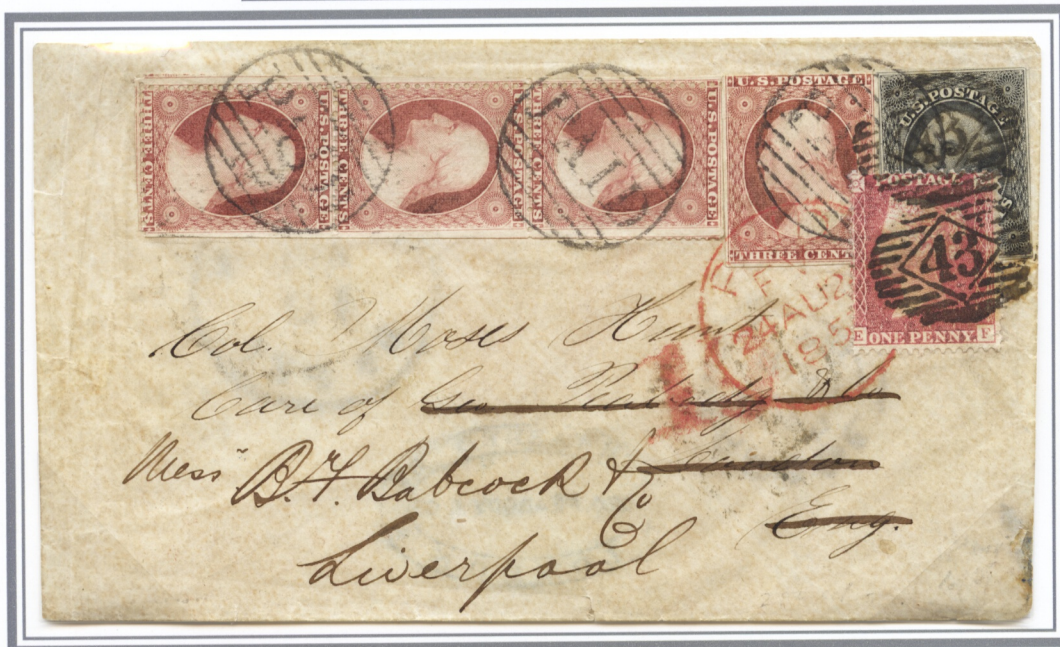 THREE CENTS U.S. POSTAGE THREE CENTS U.S. POSTAGE THREE CENTS U.S. POSTAGE
U.S. POSTAGE
THREE CENT
U.S. POSTAGE
PAID
43
POSTAGE
43
E ONE PENNY F
24 AU
185
Col. Moses Hunt
Care of Geo Peabody & Co
Mess<sup>rs</sup> B. F. Babcock & Co
London
Eng.
Liverpool